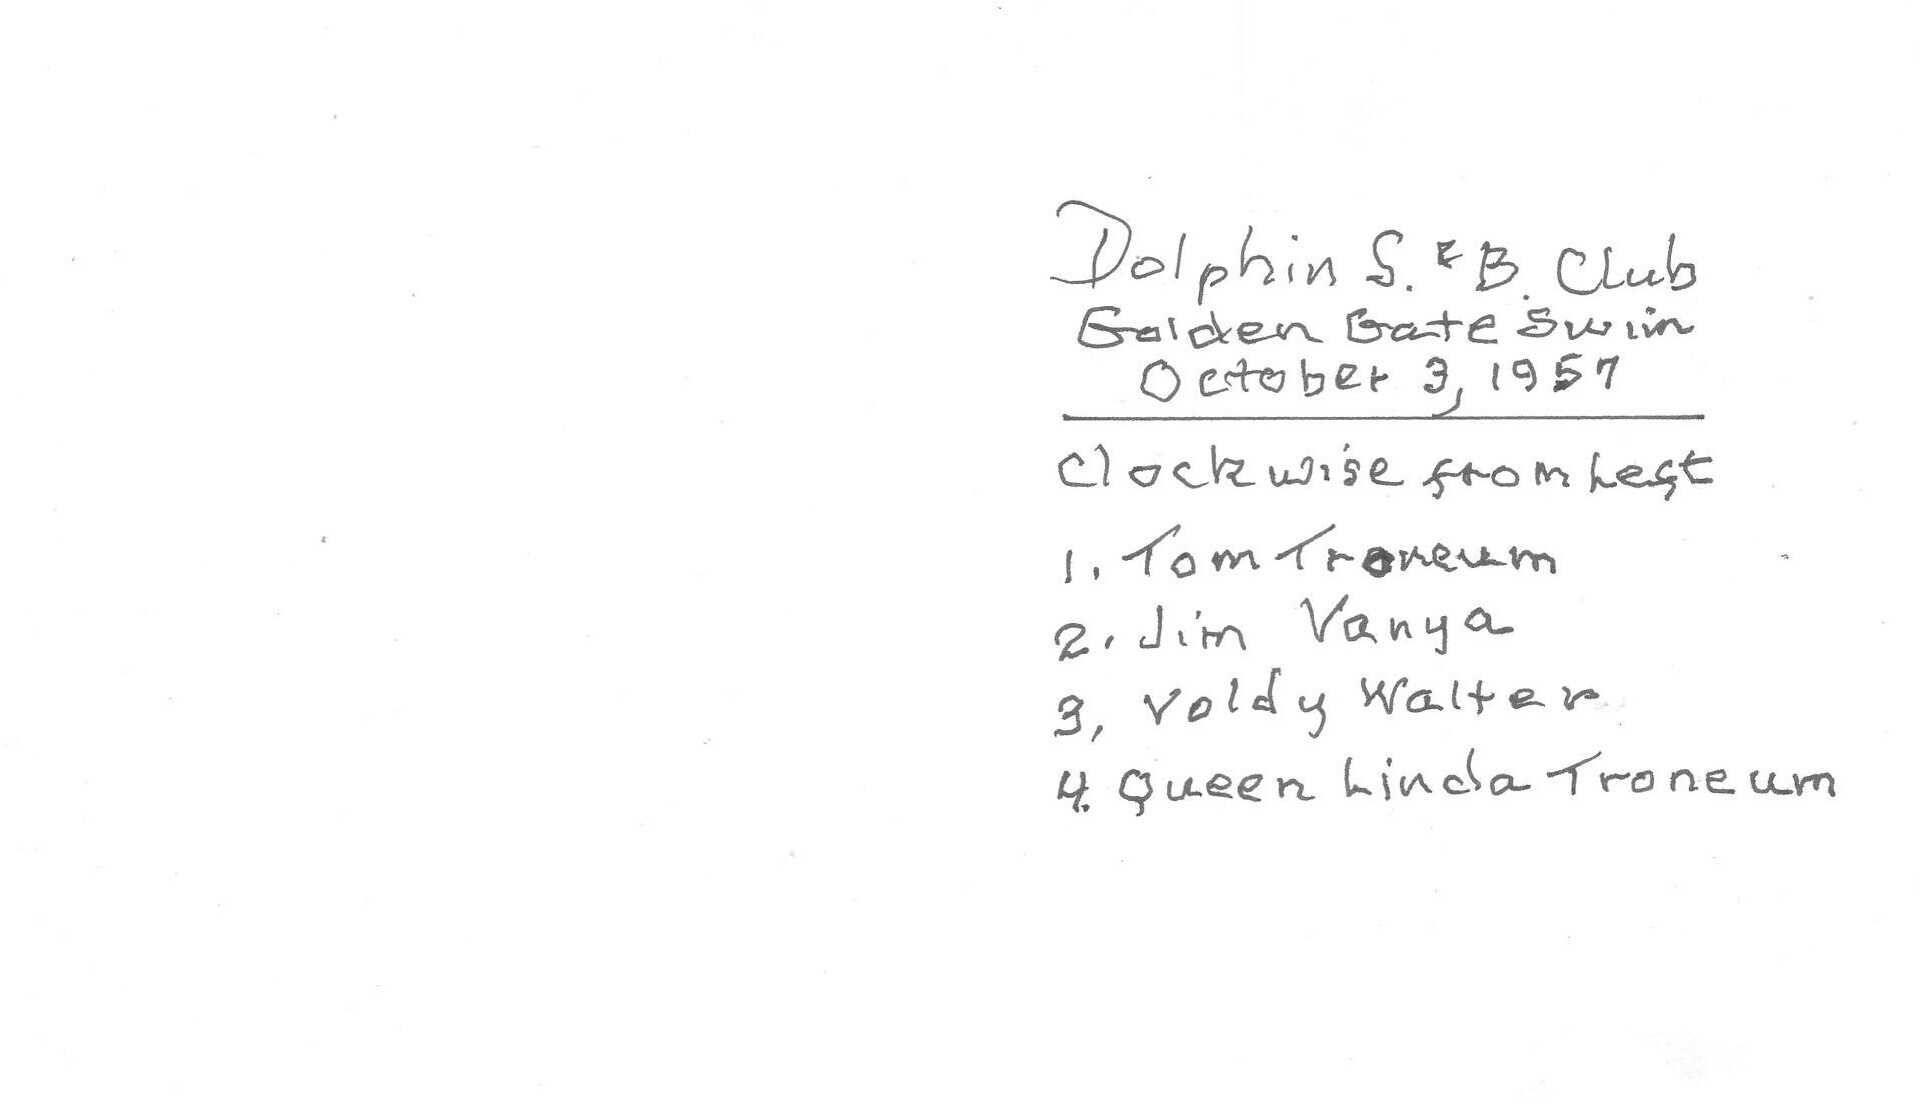 Dolphin S. & B. Club
Golden Gate Swim
October 3, 1957
Clockwise from Left
1. Tom Troneum
2. Jim Vanya
3, Voldy Walter
4. Queen Linda Troneum